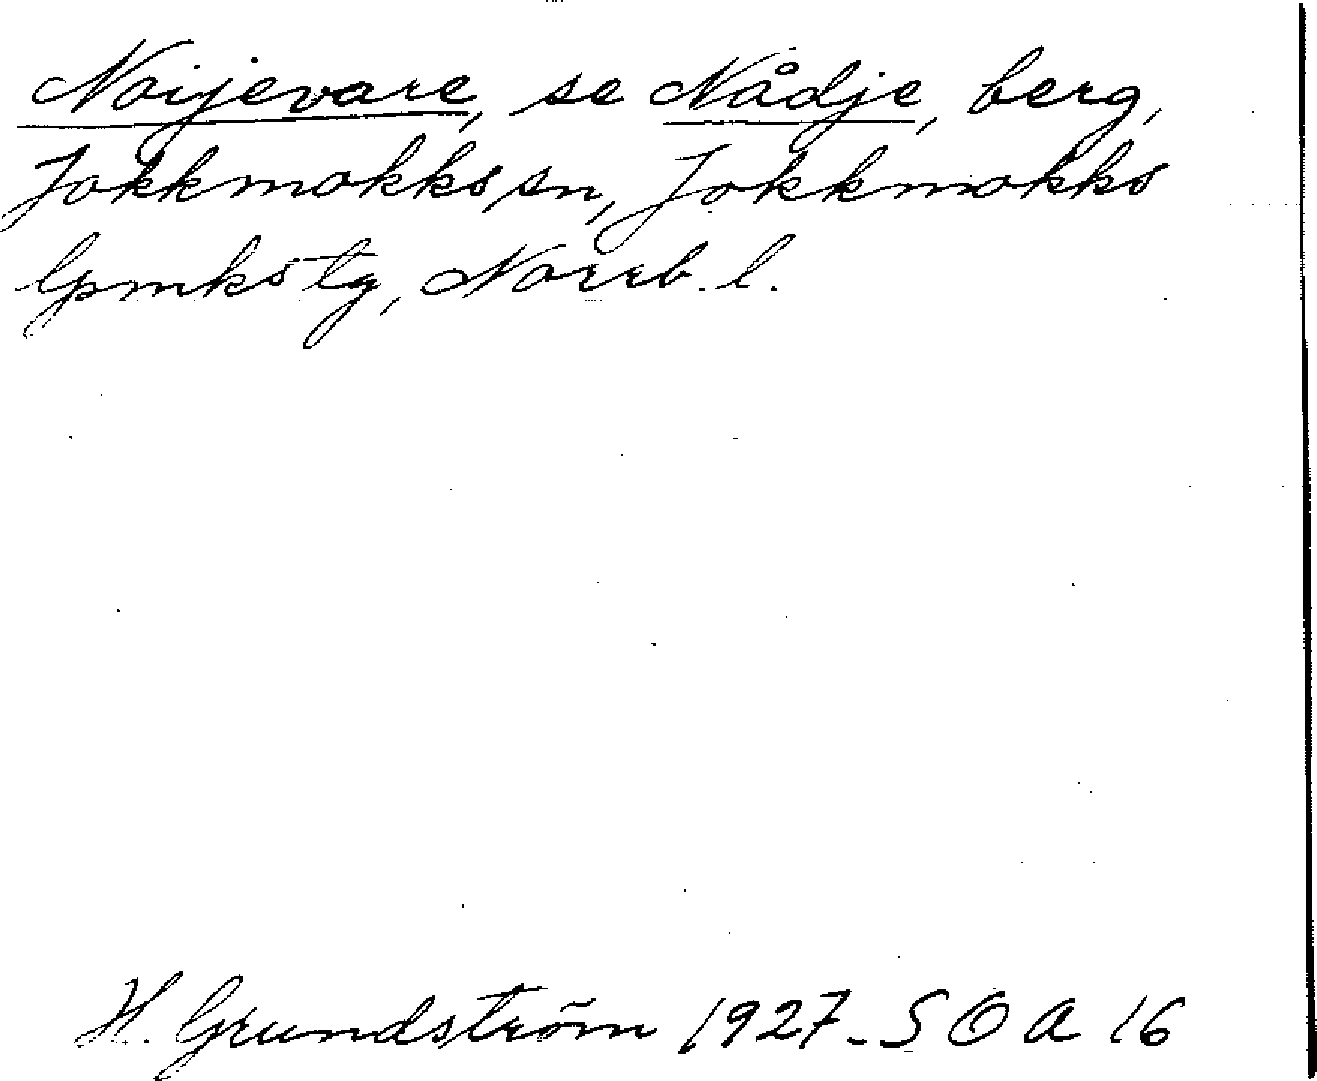 Noijevare, se Nådje, berg,
Jokkmokks sn, Jokkmokks
lpmks tg, Norrb. l.
H. Grundström 1927 - S O A 16